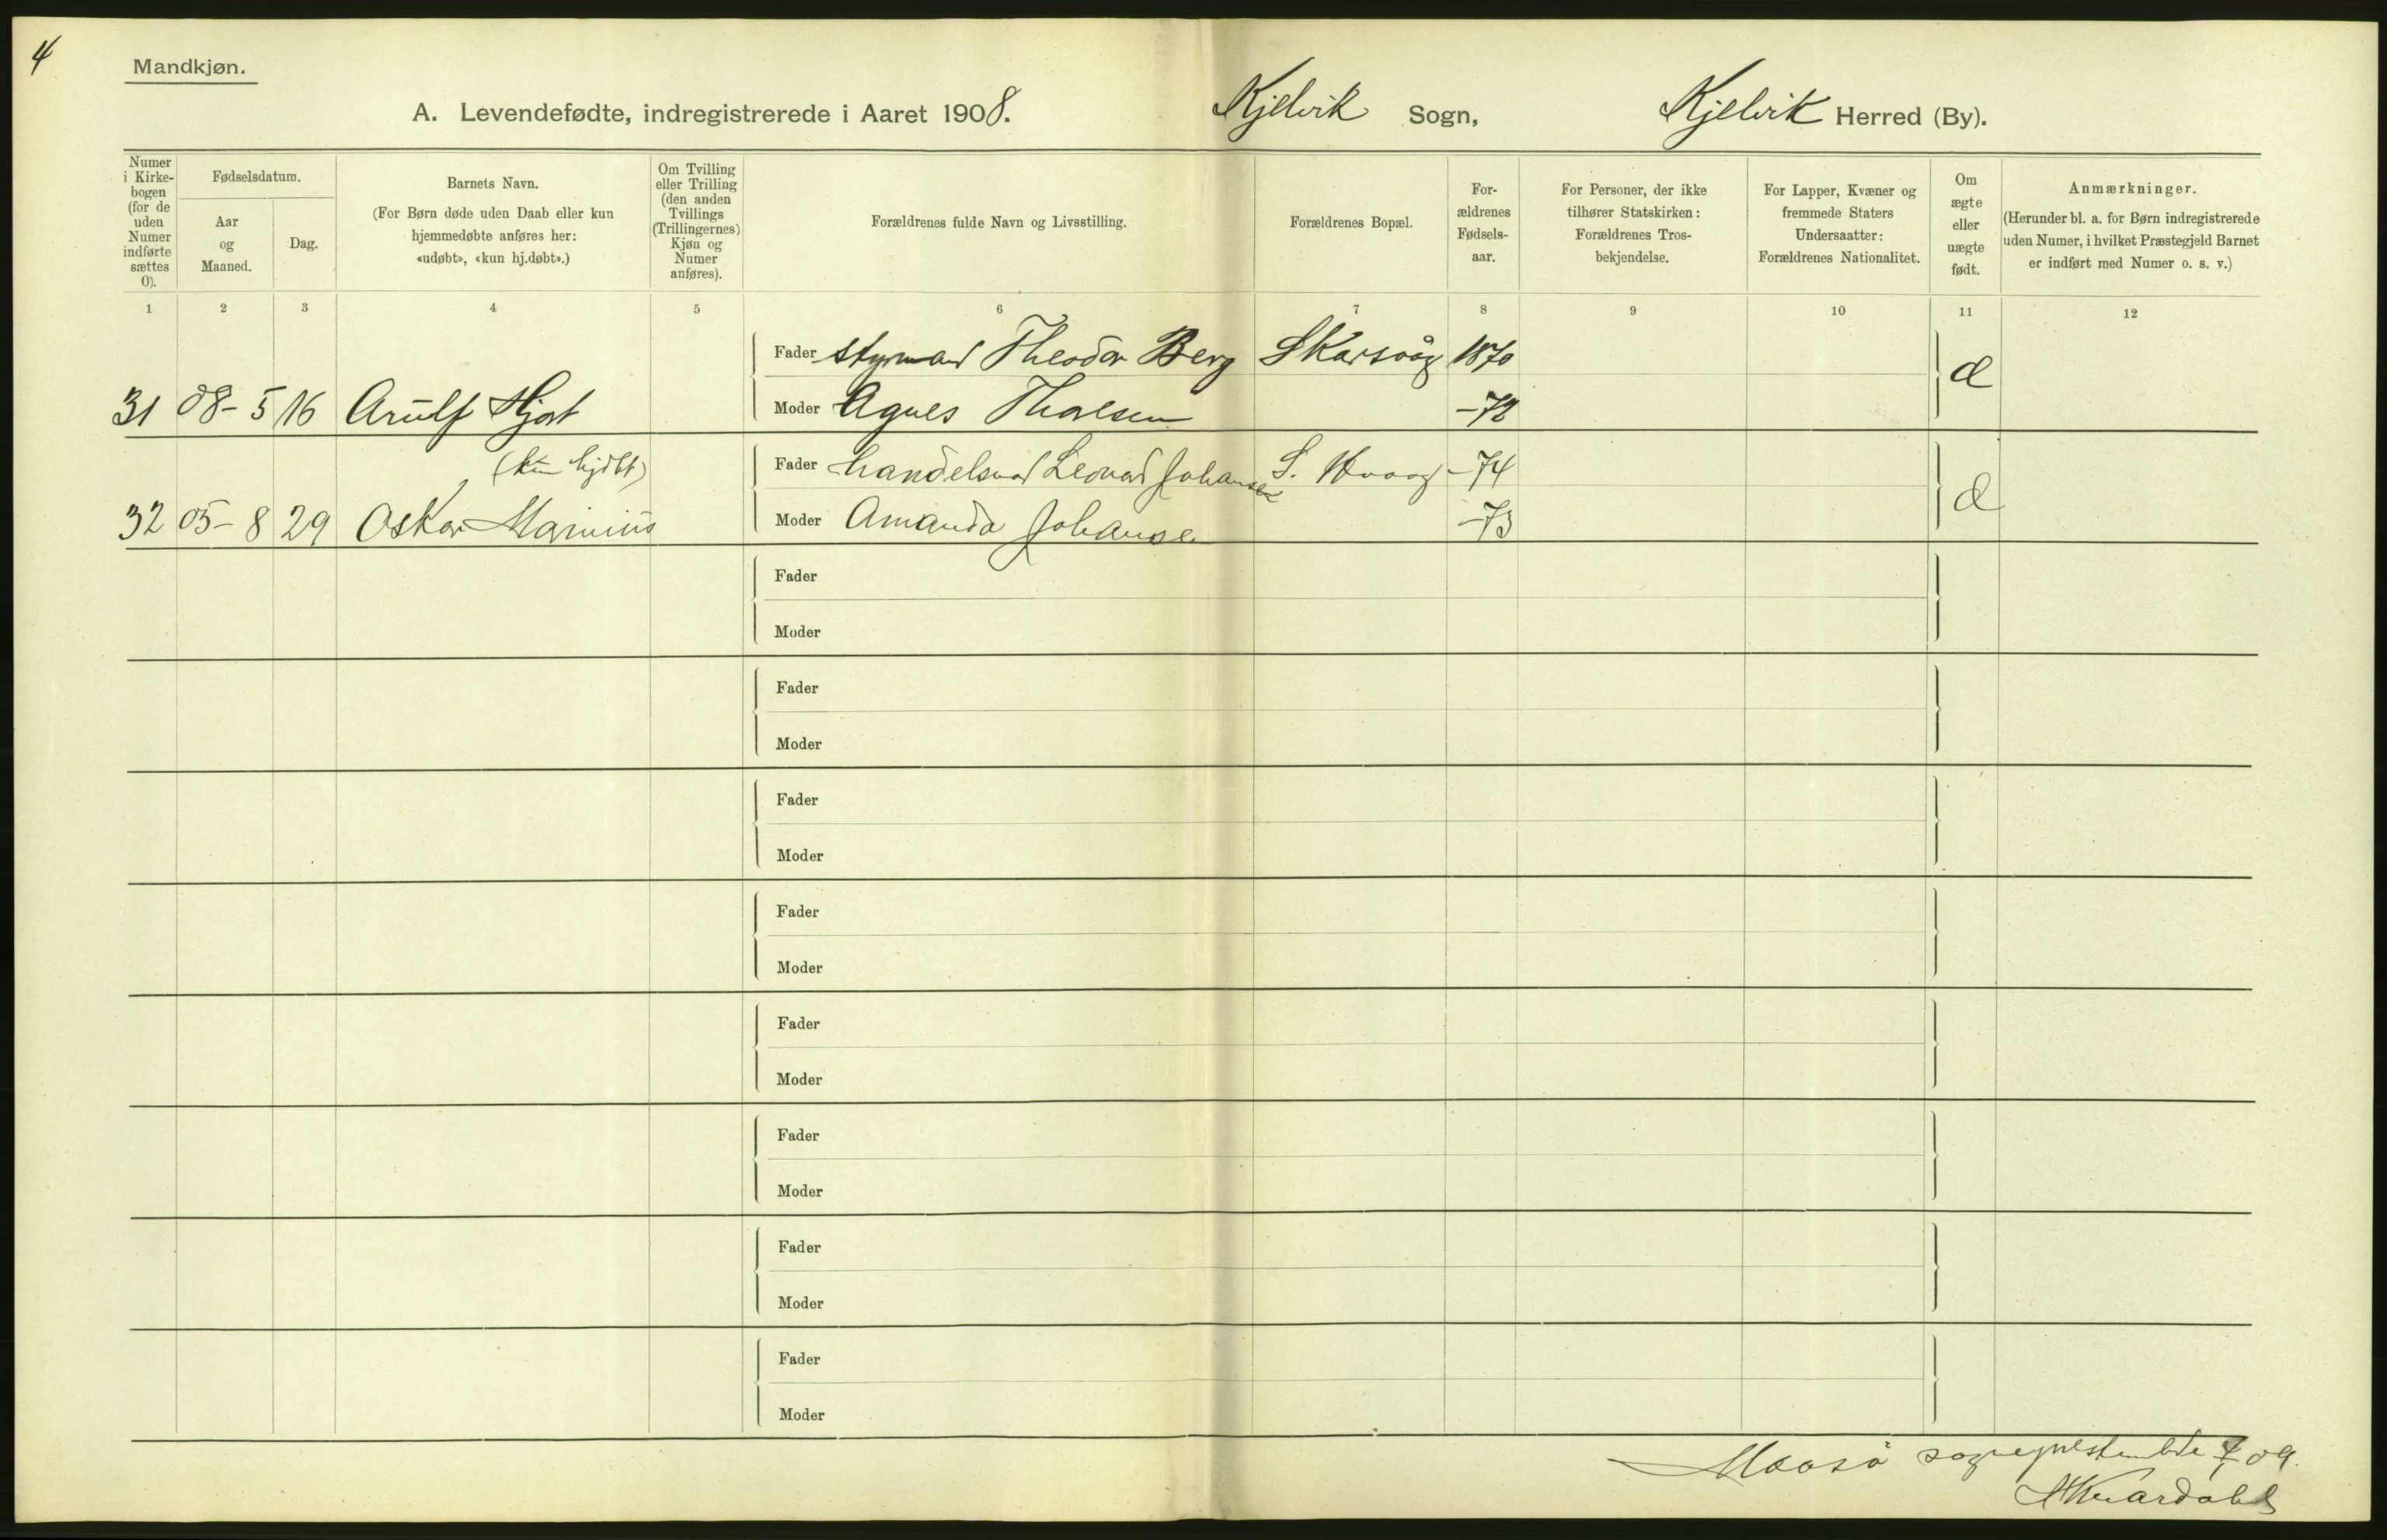 4
Mandkjøn.
A. Levendefødte, indregistrerede i Aaret 1908.
Kjelvik Sogn,
Kjelvik Herred (By).
Numer
i Kirke-
bogen
(for de
uden
Numer
indførte
sættes
0).
Fødselsdatum.
Aar
og
Maaned.
Dag.
Barnets Navn.
(For Børn døde uden Daab eller kun
hjemmedøbte anføres her:
«udøbt», «kun hj.døbt».)
Om Tvilling
eller Trilling
(den anden
Tvillings
(Trillingernes)
Kjøn og
Numer
anføres).
Forældrenes fulde Navn og Livsstilling.
Forældrenes Bopæl.
For-
ældrenes
Fødsels-
aar.
For Personer, der ikke
tilhører Statskirken:
Forældrenes Tros-
bekjendelse.
For Lapper, Kvæner og
fremmede Staters
Undersaatter:
Forældrenes Nationalitet.
Om
ægte
eller
uægte
født.
Anmærkninger.
(Herunder bl. a. for Børn indregistrerede
uden Numer, i hvilket Præstegjeld Barnet
er indført med Numer o. s. v.)
1 2 3 4 5 6 7 8 9 10 11 12
Fader Styrmand Theodor Berg Skarsvåg 1870
31 08-5 16 Arnulf Hjort Moder Agnes -72
(kun hjdbt) Fader handelsmd Leonard Johansen S. -74
32 05-8 29 Oskar Marinius Moder Amanda Johansen -73
Fader
Moder
Fader
Moder
Fader
Moder
Fader
Moder
Fader
Moder
Fader
Moder
Fader
Moder
Fader
Moder
Maasø 09.